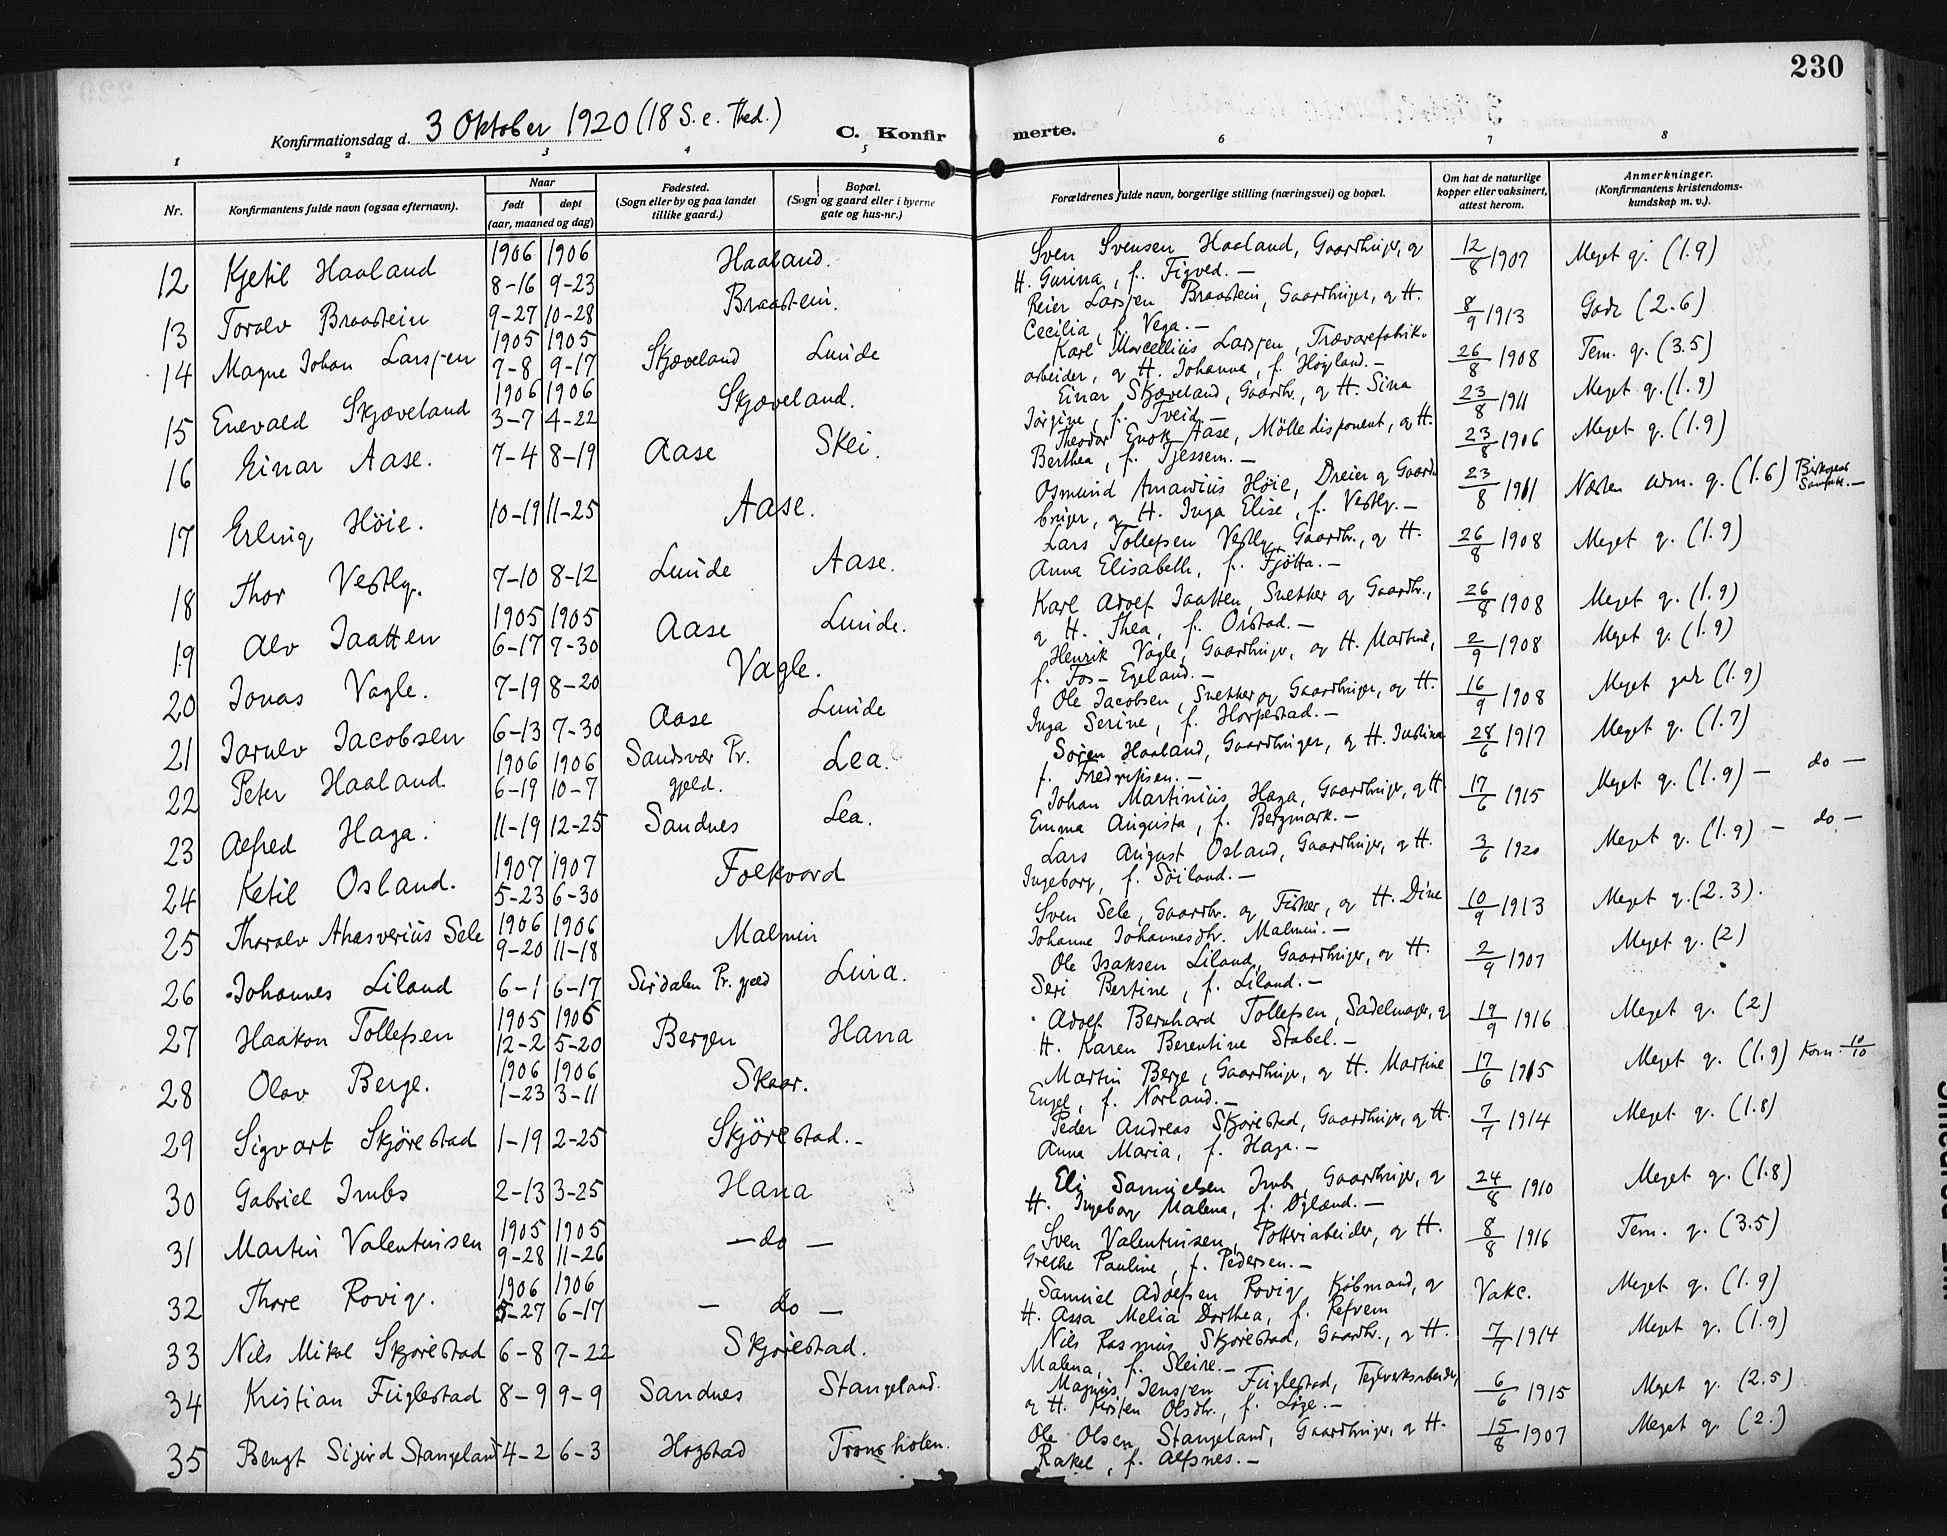 230
Konfirmationsdag d. 3 Oktober 1920 (18 S. e. Thed.)
C. Konfirmerte.
1 2 3 4 5 6 7 8
Nr. Konfirmantens fulde navn (ogsaa efternavn). Naar født døpt (aar, maaned og dag) Fødested. (Sogn eller by og paa landet tillike gaard.) Bopæl. (Sogn og gaard eller i byerne gate og hus-nr.) Forældrenes fulde navn, borgerlige stilling (næringsvei) og bopæl. Om hat de naturlige kopper eller vaksinert, attest herom. Anmerkninger. (Konfirmantens kristendomskundskap m. v.).
12 Kjetil Haaland 1906 8-16 1906 9-23 Haaland. Sven Svensen Haaland, Gaardbruger, og 12/8 1907 Meget g. (1.9)
H. Gurina, f. Figved. —
13 Toralv Braastein 9-27 10-28 Braastein. Reier Larsen Braastein, Gaardbruger, og H. 8/9 1913 Godt (2.6)
Cecilia, f. Vega. —
14 Magne Johan Larssen 1905 7-8 1905 9-17 Skjæveland Lunde Karl Marcellius Larssen, Trævarefabrik- 26/8 1908 Tem. g. (3.5)
arbeider, og H. Johanna, f. Høyland. —
15 Enevald Skjæveland 1906 3-7 1906 4-22 Skjæveland. Einar Skjæveland, Gaardbr., og H. Sina 23/8 1911 Meget g. (1.9)
Jørgine, f. Tveid. —
16 Einar Aase. 7-4 8-19 Aase Skei. Theodor Enok Aase, Mølledisponent, og H. 23/8 1906 Meget g. (1.9)
Berthea, f. Tjessem. —
17 Erling Höie. 10-19 11-25 Aase. Osmund Amandius Höie, Dreier og Gaard- 23/8 1911 Næsten udm. g. (1.6)
bruger, og H. Inga Elise, f. Vestly. —
18 Thor Vestly. 7-10 8-12 Lunde Aase. Lars Tollefsen Vestly, Gaardbr., og H. 26/8 1908 Meget g. (1.9)
Anna Elisabeth, f. Fjötta. —
19 Alv Jaatten 1905 6-17 1905 7-30 Aase Lunde. Karl Adolf Jaatten, Snekker og Gaardbr., 26/8 1908 Meget g. (1.9)
og H. Thea, f. Orstad. —
20 Jonas Vagle. 7-19 8-20 Vagle. Henrik Vagle, Gaardbruger, og H. Martine, 2/9 1908 Meget g. (1.9)
f. Fos-Egeland. —
21 Jarulv Jacobsen 6-13 7-30 Aase Lunde Ole Jacobsen, Snekker og Gaardbruger, og H. 16/9 1908 Meget godt (1.9)
Inga Serine, f. Horpestad. —
22 Peter Haaland 1906 6-19 1906 10-7 Sandsvær Pr. gjeld. Lea. Søren Haaland, Gaardbruger, og H. Justina 28/6 1917 Meget g. (1.7)
f. Fredriksen. —
23 Alfred Haga. 11-19 12-25 Sandnes Lea. Johan Martinius Haga, Gaardbruger, og H. 17/6 1915 Meget g. (1.9) — do —
Emma Augusta, f. Bergmark. —
24 Ketil Osland. 1907 5-23 1907 6-30 Folkvord Lars August Osland, Gaardbruger, og H. 3/6 1920 Meget g. (1.9) — do —
Ingeborg, f. Söiland. —
25 Thoralv Ahasverius Sele 1906 9-20 1906 11-18 Malmin Sven Sele, Gaardbr. og Fisker, og H. Dine 10/9 1913 Meget g. (2.3).
Johanne Johannesdtr. Malmin. —
26 Johannes Liland 6-1 6-17 Sirdalen Pr. gjeld Lura. Ole Isaksen Liland, Gaardbruger, og H. 2/9 1907 Meget g. (2)
Seri Bertine, f. Liland. —
27 Haakon Tollefsen 1905 12-2 1906 5-20 Bergen Hana Adolf Bernhard Tollefsen, Sadelmager, og 19/9 1916 Meget g. (2)
H. Karen Berentine Stabel. —
28 Olav Berge. 1906 1-23 1906 3-11 Skaar. Martin Berge, Gaardbruger, og H. Martine 17/6 1915 Meget g. (1.9) Kom. 10/10
Engel, f. Norland. —
29 Sigvart Skjörestad 1-19 2-25 Skjörestad. — Peder Andreas Skjörestad, Gaardbruger, og H. 7/7 1914 Meget g. (1.8)
Anna Maria, f. Haga. —
30 Gabriel Imbs 2-13 3-25 Hana Eli Samuelsen Imbs, Gaardbruger, og 24/8 1910 Meget g. (1.8)
H. Ingeborg Malena, f. Ogland. —
31 Martin Valentinsen 1905 9-28 1905 11-26 — do — Sven Valentinsen, Potteriarbeider, og H. 8/8 1916 Tem. g. (3.5)
Grethe Pauline, f. Pedersen. —
32 Thore Rovig. 1906 5-27 1906 6-17 — do — Samuel Adolfsen Rovig, Købmand, og Vakc. Meget g. (1.9)
H. Assa Melia Dorthea, f. Refvem
33 Nils Mikal Skjörestad 6-8 7-22 Skjörestad. Nils Rasmus Skjörestad, Gaardbr., og H. 7/7 1914 Meget g. (1.9)
Malena, f. Sleire. —
34 Kristian Fuglestad 8-9 9-9 Sandnes Stangeland. Magnus Jenssen Fuglestad, Teglverksarbeider, 6/6 1915 Meget g. (2.5)
og H. Kirsten Olsdtr., f. Löge. —
35 Bengt Sigurd Stangeland 4-2 6-3 Hogstad Tronsholen. Ole Olsen Stangeland, Gaardbruger, og H. 15/8 1907 Meget g. (2.)
Rakel, f. Alfsnes. —